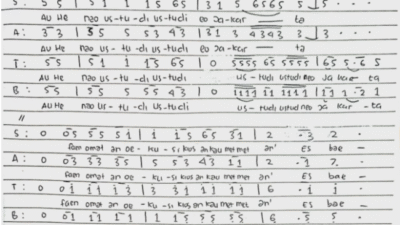 S: 5 5 | 5 1 1 15 65 | 3 1 5 6565 5 5 . . .
AU HE nao us-tu-di us-tudi eo ja-kar — ta
A: 3 3 | 35 5 5 53 43 | 3 1 3 4343 3 3 . . .
AU HE nao us-tu-di us-tudi eo ja-kar — ta
T: 55 | 51 1 1 13 65 | 0 5555 65 5555 | 65 5 . 6 5
AU HE nao us-tu-di us-tudi us-tudi ustudi neo ja kar - ta
B: 55 | 55 5 5 55 | 0 1111 11 1111 | 11 1 . 2 1
AU HE nao us-tu-di us-tudi us-tudi ustudi neo ja kar - ta
//
S: 0 05 55 51 | 1 15 65 31 | 2 . 3 2 .
faen omat an oe - ku-si kus an kau met met an' es bae —
A: 0 03 33 35 | 5 53 43 11 | 2 . 1 7 .
faen omat an oe - ku-si kus an kau met met an' es bae —
T: 0 01 11 13 | 3 31 11 11 | 6 . 1 1 .
faen omat an oe - ku-si kus an kau met met an' es bae —
B: 0 01 11 11 | 1 15 55 55 | 6 . 5 5 .